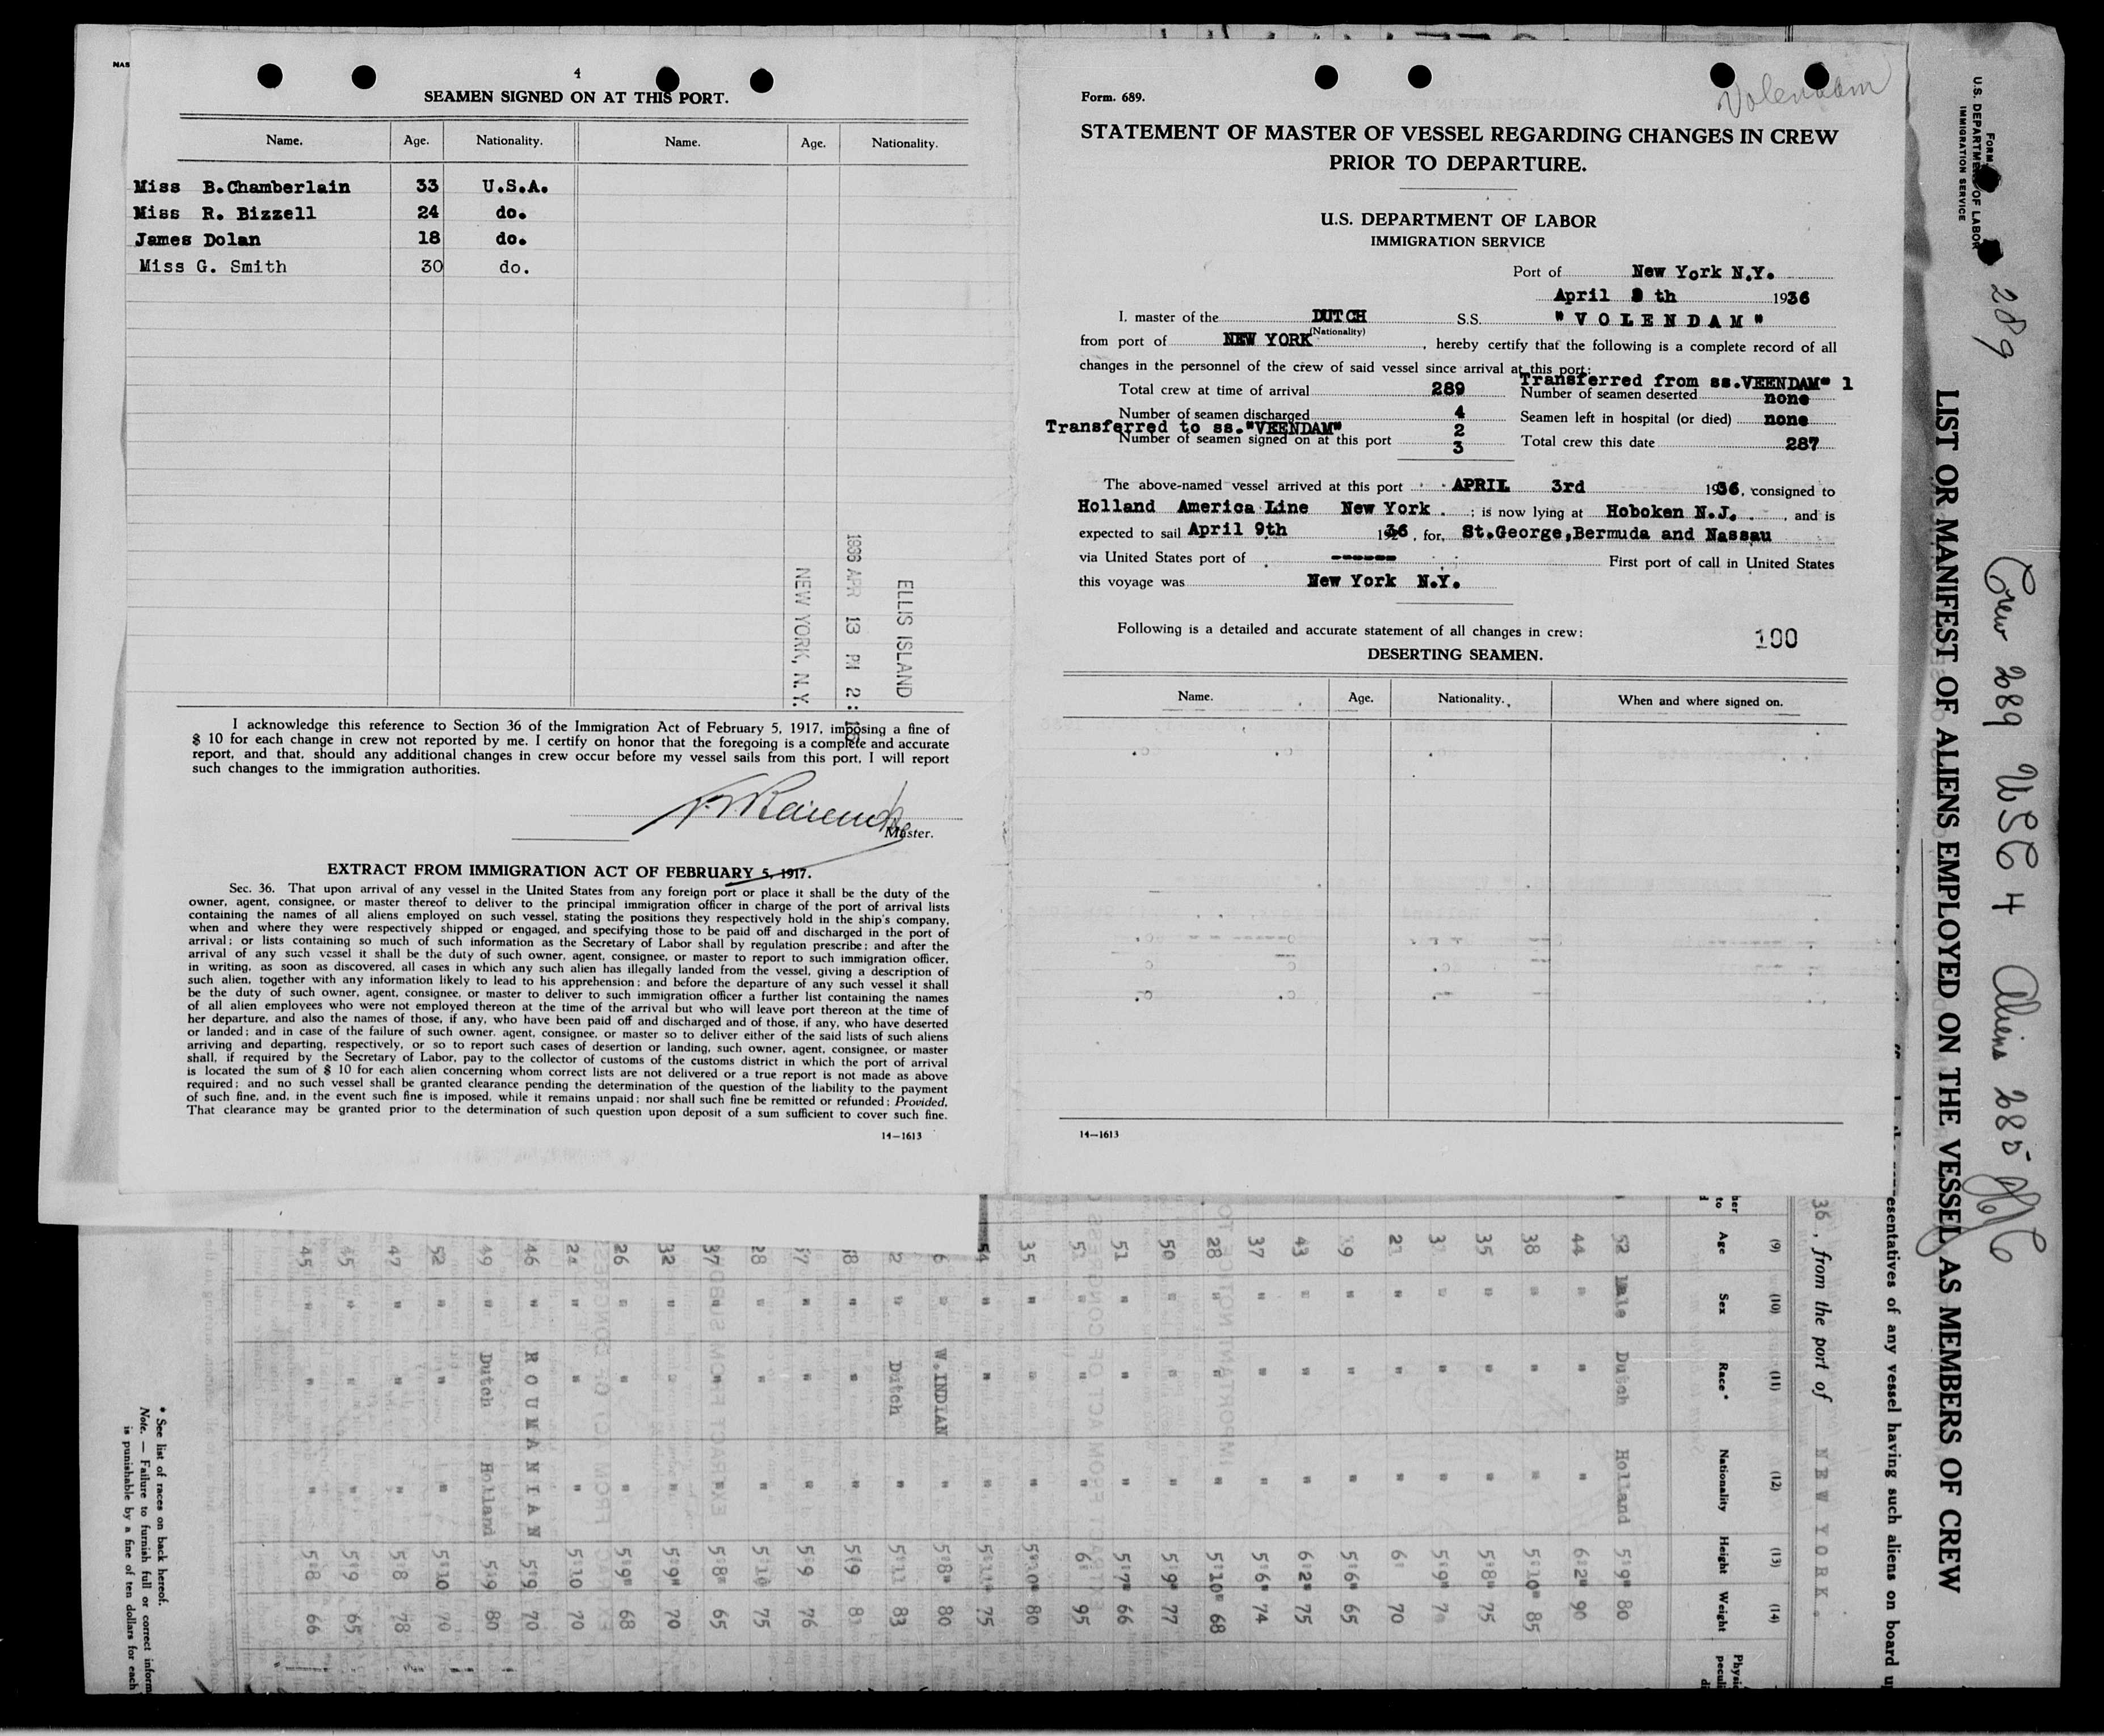 NAS
4
SEAMEN SIGNED ON AT THIS PORT.
Name. Age. Nationality. Name. Age. Nationality.
Miss B.Chamberlain 33 U.S.A.
Miss R. Bizzell 24 do.
James Dolan 18 do.
Miss G. Smith 30 do.
ELLIS ISLAND
1936 APR 13 PM 2:
NEW YORK, N.Y.
I acknowledge this reference to Section 36 of the Immigration Act of February 5, 1917, imposing a fine of
$ 10 for each change in crew not reported by me. I certify on honor that the foregoing is a complete and accurate
report, and that, should any additional changes in crew occur before my vessel sails from this port, I will report
such changes to the immigration authorities.
Master.
EXTRACT FROM IMMIGRATION ACT OF FEBRUARY 5, 1917.
Sec. 36. That upon arrival of any vessel in the United States from any foreign port or place it shall be the duty of the
owner, agent, consignee, or master thereof to deliver to the principal immigration officer in charge of the port of arrival lists
containing the names of all aliens employed on such vessel, stating the positions they respectively hold in the ship's company,
when and where they were respectively shipped or engaged, and specifying those to be paid off and discharged in the port of
arrival; or lists containing so much of such information as the Secretary of Labor shall by regulation prescribe; and after the
arrival of any such vessel it shall be the duty of such owner, agent, consignee, or master to report to such immigration officer,
in writing, as soon as discovered, all cases in which any such alien has illegally landed from the vessel, giving a description of
such alien, together with any information likely to lead to his apprehension; and before the departure of any such vessel it shall
be the duty of such owner, agent, consignee, or master to deliver to such immigration officer a further list containing the names
of all alien employees who were not employed thereon at the time of the arrival but who will leave port thereon at the time of
her departure, and also the names of those, if any, who have been paid off and discharged and of those, if any, who have deserted
or landed; and in case of the failure of such owner, agent, consignee, or master so to deliver either of the said lists of such aliens
arriving and departing, respectively, or so to report such cases of desertion or landing, such owner, agent, consignee, or master
shall, if required by the Secretary of Labor, pay to the collector of customs of the customs district in which the port of arrival
is located the sum of $ 10 for each alien concerning whom correct lists are not delivered or a true report is not made as above
required; and no such vessel shall be granted clearance pending the determination of the question of the liability to the payment
of such fine, and, in the event such fine is imposed, while it remains unpaid; nor shall such fine be remitted or refunded: Provided,
That clearance may be granted prior to the determination of such question upon deposit of a sum sufficient to cover such fine.
14—1613
Volendam
Form. 689.
STATEMENT OF MASTER OF VESSEL REGARDING CHANGES IN CREW
PRIOR TO DEPARTURE.
U.S. DEPARTMENT OF LABOR
IMMIGRATION SERVICE
Port of New York N.Y.
April th 1936
I, master of the DUTCH S.S. "VOLENDAM"
(Nationality)
from port of NEW YORK, hereby certify that the following is a complete record of all
changes in the personnel of the crew of said vessel since arrival at this port:
Transferred from ss.VEENDAM" 1
Total crew at time of arrival 289 Number of seamen deserted none
Number of seamen discharged 4 Seamen left in hospital (or died) none
Transferred to ss."VEENDAM" 2
Number of seamen signed on at this port 3 Total crew this date 287
The above-named vessel arrived at this port APRIL 3rd 1936, consigned to
Holland America Line New York ; is now lying at Hoboken N.J. , and is
expected to sail April 9th 1936, for, St.George,Bermuda and Nassau
via United States port of ------ First port of call in United States
this voyage was New York N.Y.
Following is a detailed and accurate statement of all changes in crew:
100
DESERTING SEAMEN.
Name. Age. Nationality. When and where signed on.
14—1613
Form
U.S. DEPARTMENT OF LABOR
IMMIGRATION SERVICE
289
Crew 289 USC 4 Aliens 285
LIST OR MANIFEST OF ALIENS EMPLOYED ON THE VESSEL AS MEMBERS OF CREW
esentatives of any vessel having such aliens on board u
36, from the port of NEW YORK.
(9) (10) (11) (12) (13) (14)
Age Sex Race* Nationality Height Weight
52 Male Dutch Holland 5'9" 80
44 " " " 6'2" 90
38 " " " 5'10" 85
35 " " " 5'8" 75
" " " 5'9"
" " " 6' 70
" " " 5'6" 65
43 " " " 6'2" 75
37 " " " 5'6" 74
28 " " " 5'10" 68
50 " " " 5'9" 77
51 " " " 5'7" 66
" " " 95
35 " " " 80
54 " " " 75
" W.INDIAN " 5'8" 80
" Dutch " 5'11 83
" " " 5'9
" " " 5'9 76
" " " 75
37 " " " 5'8" 65
32 " " " 5'9" 70
26 " " " 5'9" 68
" " " 5'10 70
46 " ROUMANIAN 5'9 70
49 " Dutch Holland 5'9 80
52 " " " 5'10 70
47 " " " 5'8 78
45 " " " 5'9 65
45 " " " 5'8 66
* See list of races on back hereof.
Note. — Failure to furnish full or correct inform
is punishable by a fine of ten dollars for each